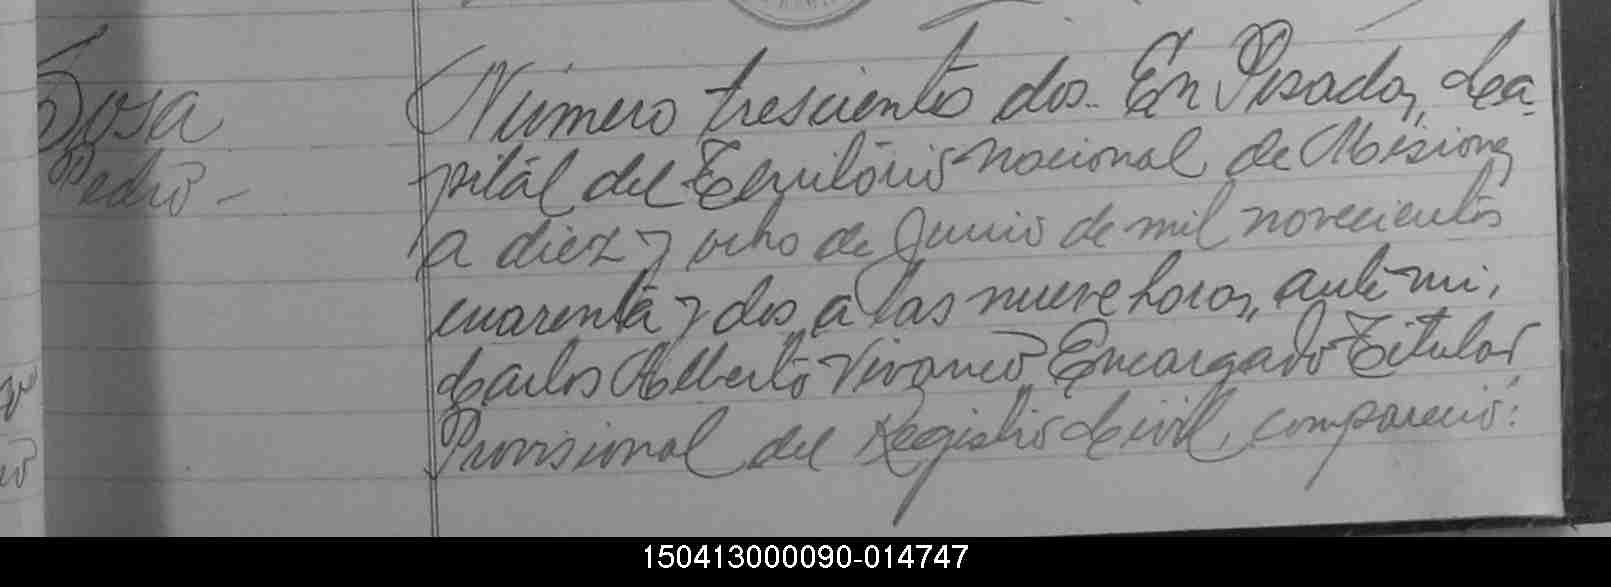 Sosa
Pedro -
Número trescientos dos.. En Posadas, Ca-
pital del Territorio Nacional de Misiones,
a diez y ocho de Junio de mil novecientos
cuarenta y dos, a las nueve horas, ante mi,
Carlos Alberto Vivanco, Encargado Titular
Provisional del Registro Civil, compareció:
150413000090-014747